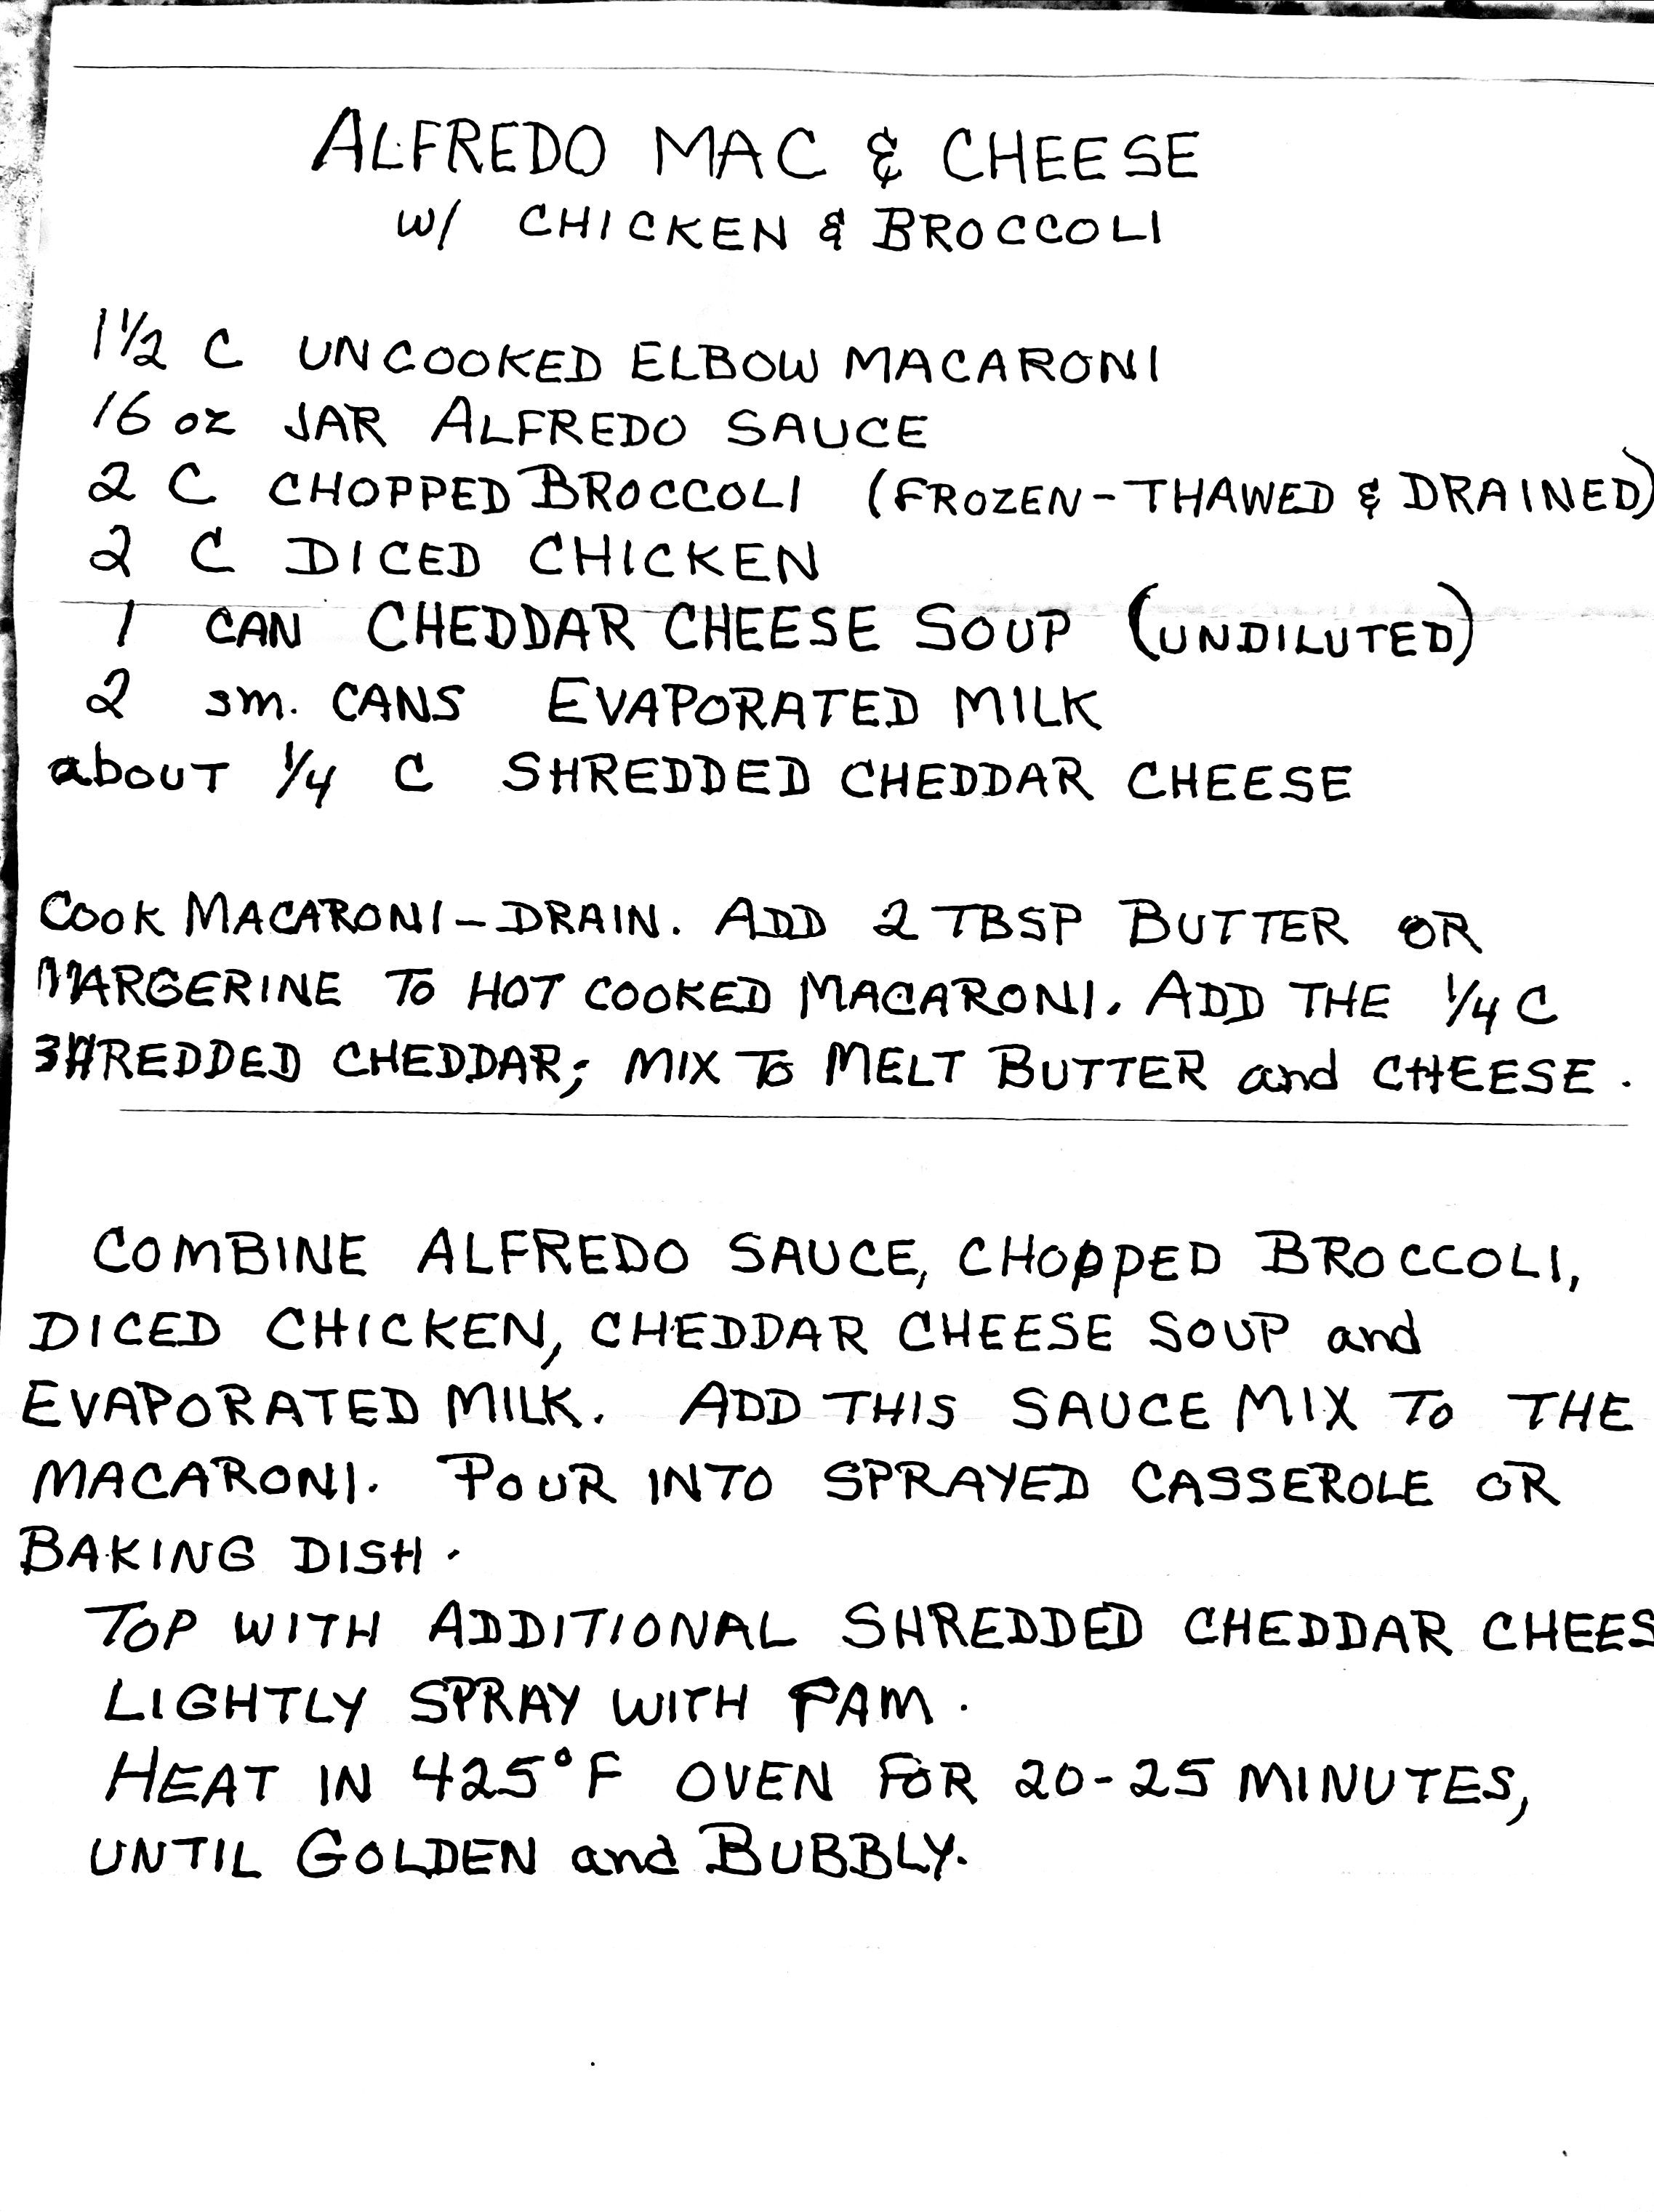 ALFREDO MAC & CHEESE
W/ CHICKEN & BROCCOLI
1 1/2 C UNCOOKED ELBOW MACARONI
16 oz JAR ALFREDO SAUCE
2 C CHOPPED BROCCOLI (FROZEN-THAWED & DRAINED)
2 C DICED CHICKEN
1 CAN CHEDDAR CHEESE SOUP (UNDILUTED)
2 sm. CANS EVAPORATED MILK
about 1/4 C SHREDDED CHEDDAR CHEESE
COOK MACARONI-DRAIN. ADD 2 TBSP BUTTER OR
MARGERINE TO HOT COOKED MACARONI. ADD THE 1/4 C
SHREDDED CHEDDAR; MIX TO MELT BUTTER and CHEESE.
COMBINE ALFREDO SAUCE, CHOPPED BROCCOLI,
DICED CHICKEN, CHEDDAR CHEESE SOUP and
EVAPORATED MILK. ADD THIS SAUCE MIX TO THE
MACARONI. POUR INTO SPRAYED CASSEROLE OR
BAKING DISH.
TOP WITH ADDITIONAL SHREDDED CHEDDAR CHEES
LIGHTLY SPRAY WITH PAM.
HEAT IN 425°F OVEN FOR 20-25 MINUTES,
UNTIL GOLDEN and BUBBLY.